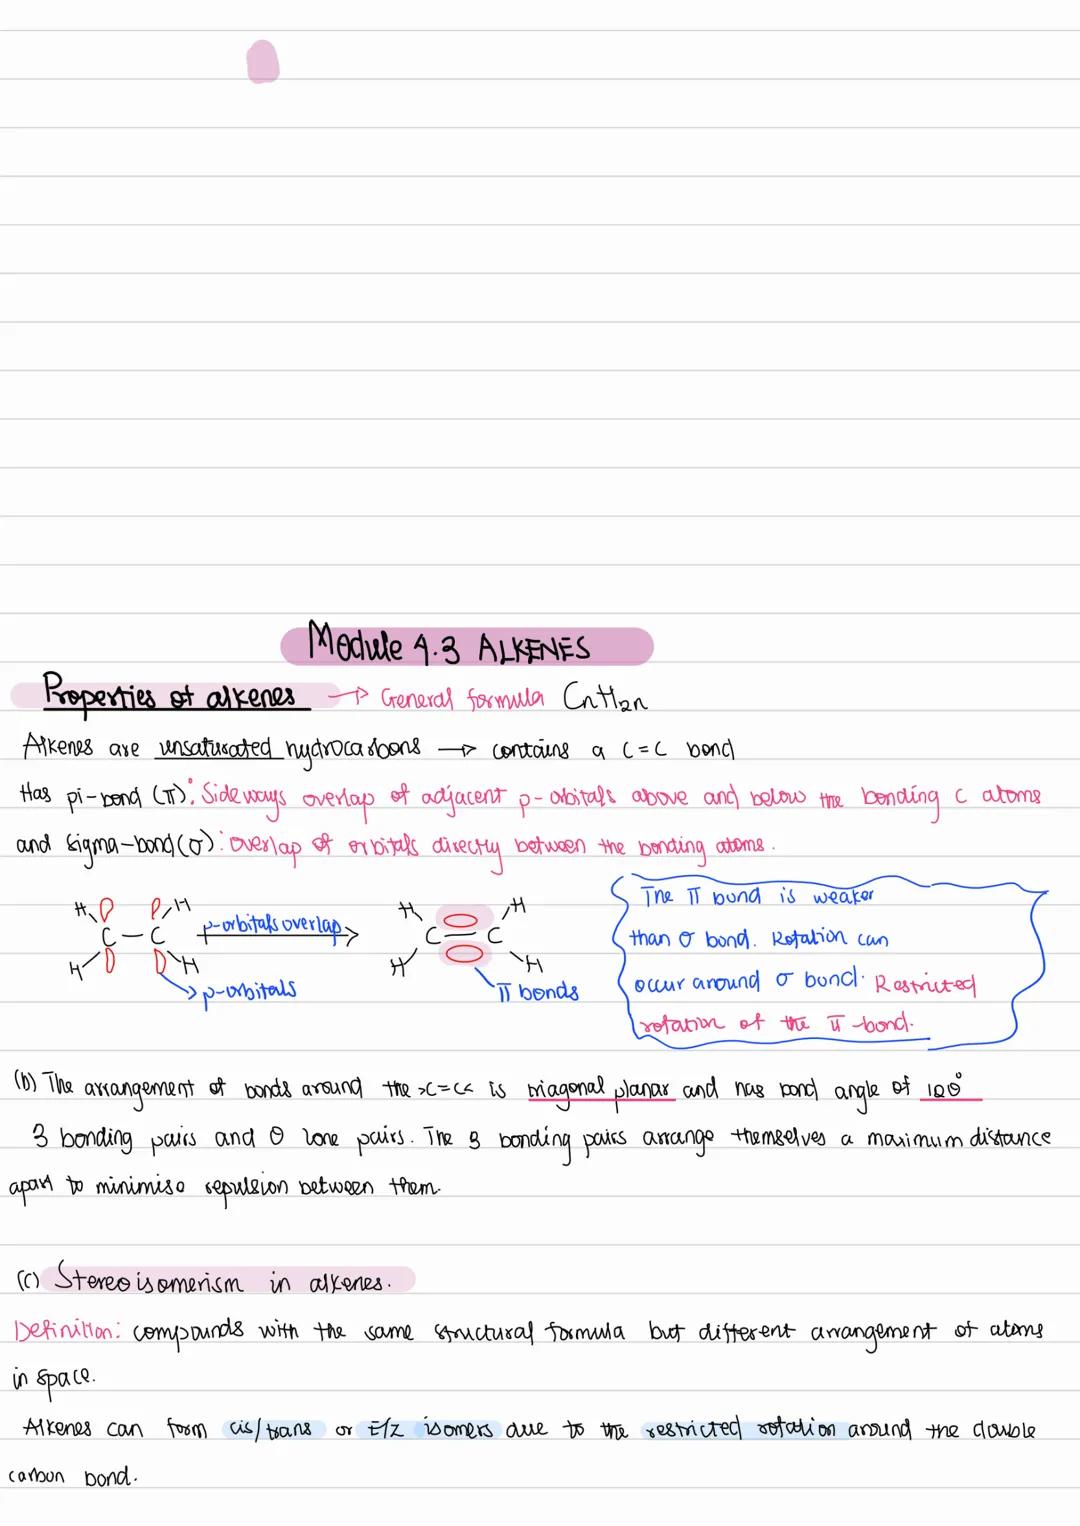 Module 4.3 ALKENES
Properties of alkenes → General formula CnH2n
Alkenes are unsaturated hydrocarbons → contains a C=C bond
Has pi-bond (π): Sideways overlap of adjacent p-orbitals above and below the bonding C atoms
and sigma-bond(σ): overlap of orbitals directly between the bonding atoms.
H H
C-C
H H
p-orbitals overlap
p-orbitals
H H
C=C
H H
π bonds
The π bond is weaker
than σ bond. Rotation can
occur around σ bond. Restricted
rotation of the π-bond.
(b) The arrangement of bonds around the >C=C< is triagonal planar and has bond angle of 120°
3 bonding pairs and 0 lone pairs. The 3 bonding pairs arrange themselves a maximum distance
apart to minimise repulsion between them.
(c) Stereoisomerism in alkenes.
Definition: compounds with the same structural formula but different arrangement of atoms
in space.
Alkenes can form cis/trans or E/Z isomers due to the restricted rotation around the double
carbon bond.